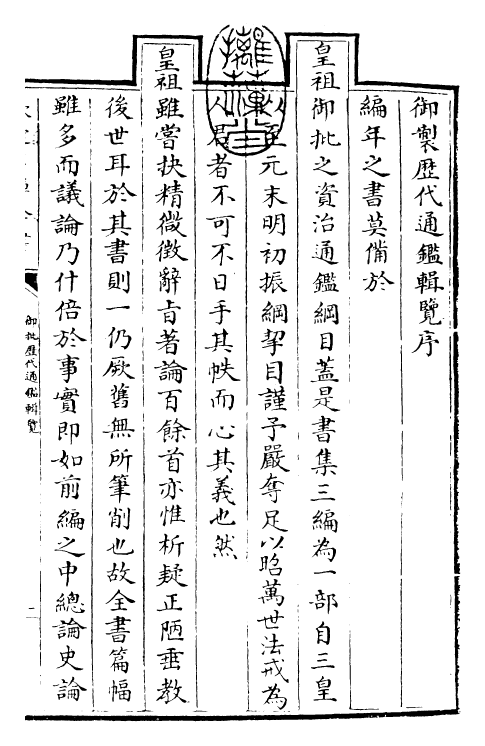 御製歴代通鑑輯覽序
編年之書莫備於
皇祖御批之資治通鑑綱目蓋是書集三編為一部自三皇
以至元末明初振綱挈目謹予嚴奪足以昭萬世法戒為
人君者不可不日手其帙而心其義也然
皇祖雖嘗抉精微徵辭㫖著論百餘首亦惟析疑正陋垂教
後世耳於其書則一仍厥舊無所筆削也故全書篇幅
雖多而議論乃什倍於事實即如前編之中總論史論
御批歷代通鑑輯覽
一